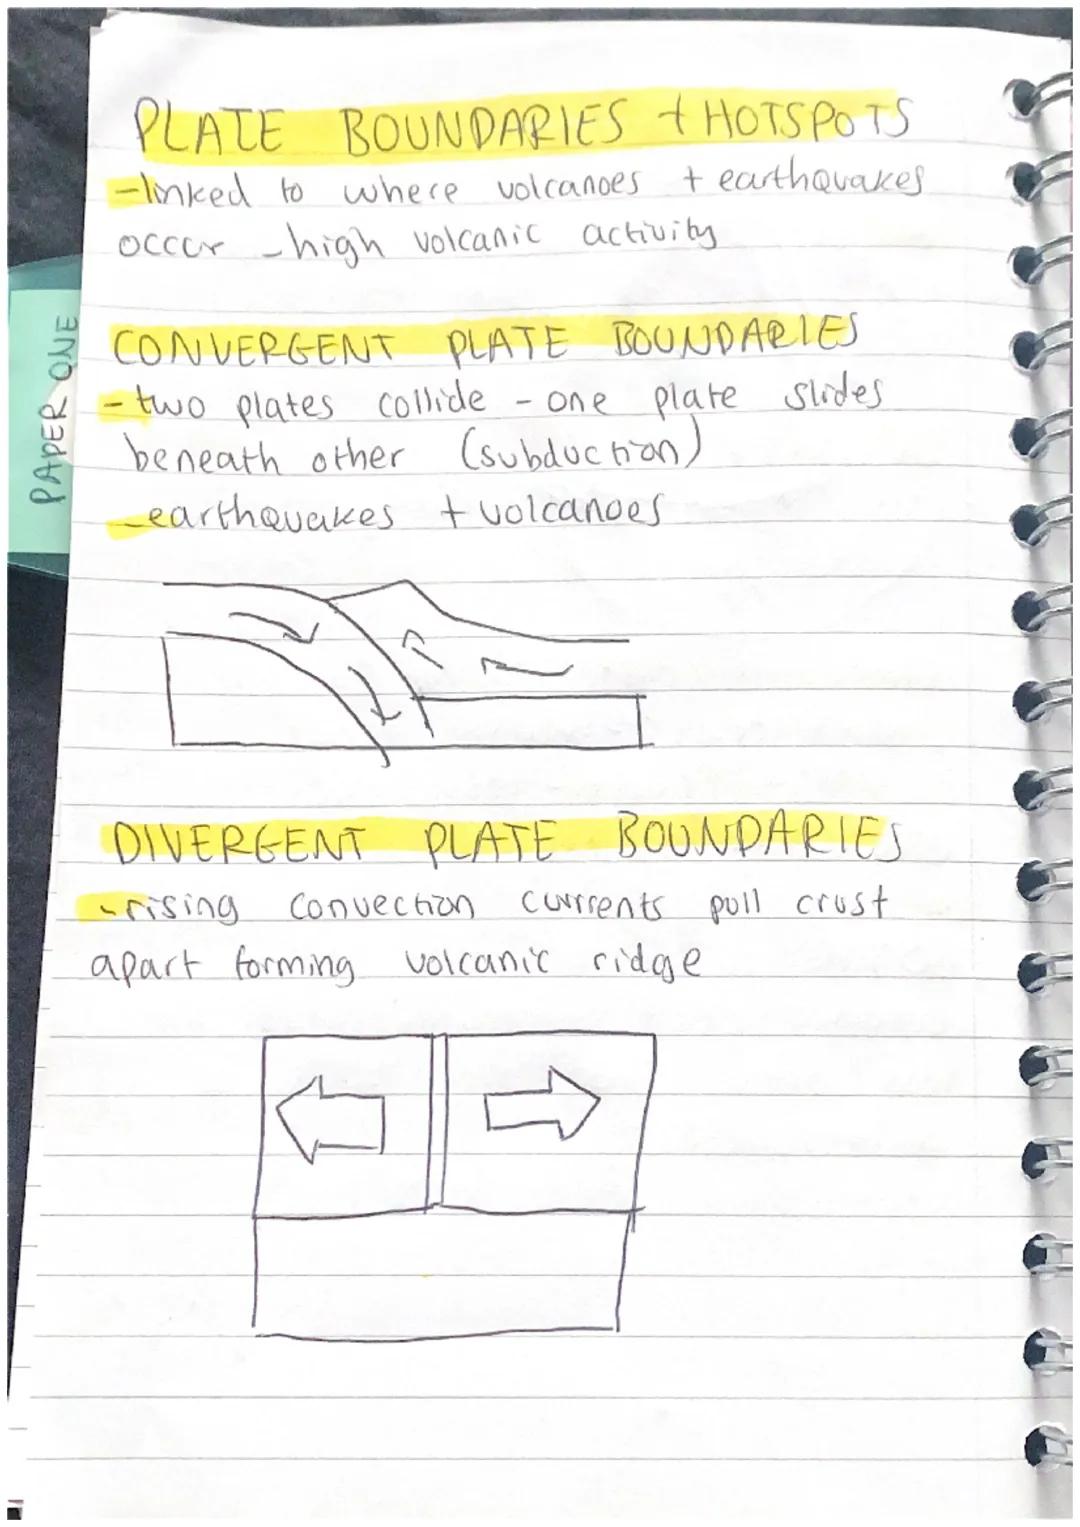 PLATE BOUNDARIES + HOTSPOTS
-linked to where volcanoes + earthquakes
occur -high volcanic activity
PAPER ONE
CONVERGENT PLATE BOUNDARIES
-two plates collide - one plate slides
beneath other (subduction)
-earthquakes + volcanoes
DIVERGENT PLATE BOUNDARIES
-rising convection currents pull crust
apart forming volcanic ridge